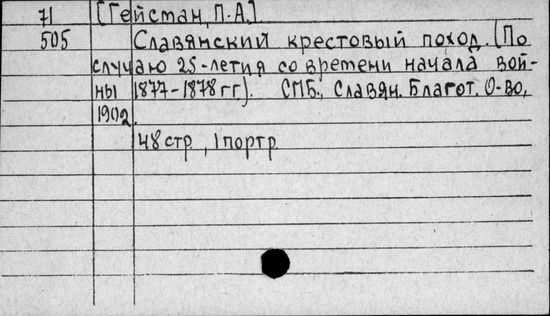 71 [Гейсман, П.А.]
505 Славянский крестовый поход. (По
случаю 25-летия со времени начала вой-
ны 1877-1878 гг). СПБ., Славян. Благот. О-во,
1902.
48 стр, 1 портр